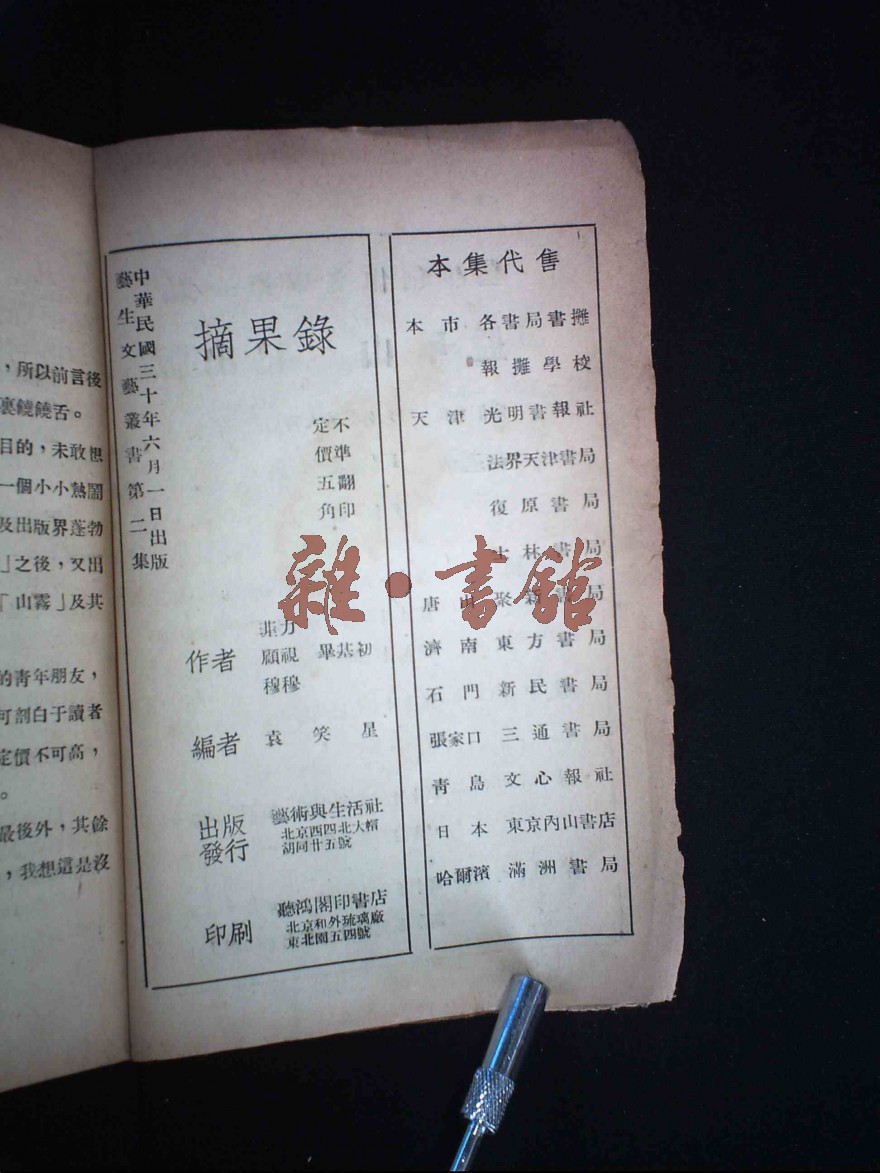 ，所以前言後
裏饒饒舌。
目的，未敢想
一個小小熱鬧
及出版界蓬勃
」之後，又出
「山霧」及其
的青年朋友，
可剖白于讀者
定價不可高，
。
最後外，其餘
，我想這是沒
中華民國三十年六月一日出版
藝生文藝叢書第二集
摘果錄
不準翻印
定價五角
作者
顧視 畢基初
穆穆
編者 袁笑星
出版
發行
藝術與生活社
北京西四北大帽
胡同廿五號
印刷
聽鴻閣印書店
北京和外琉璃廠
東北園五四號
本集代售
本市 各書局書攤
報攤學校
天津 光明書報社
法界天津書局
復原書局
士林書局
唐山 聚新書局
濟南 東方書局
石門 新民書局
張家口 三通書局
青島 文心報社
日本 東京內山書店
哈爾濱 滿洲書局
雜·書館